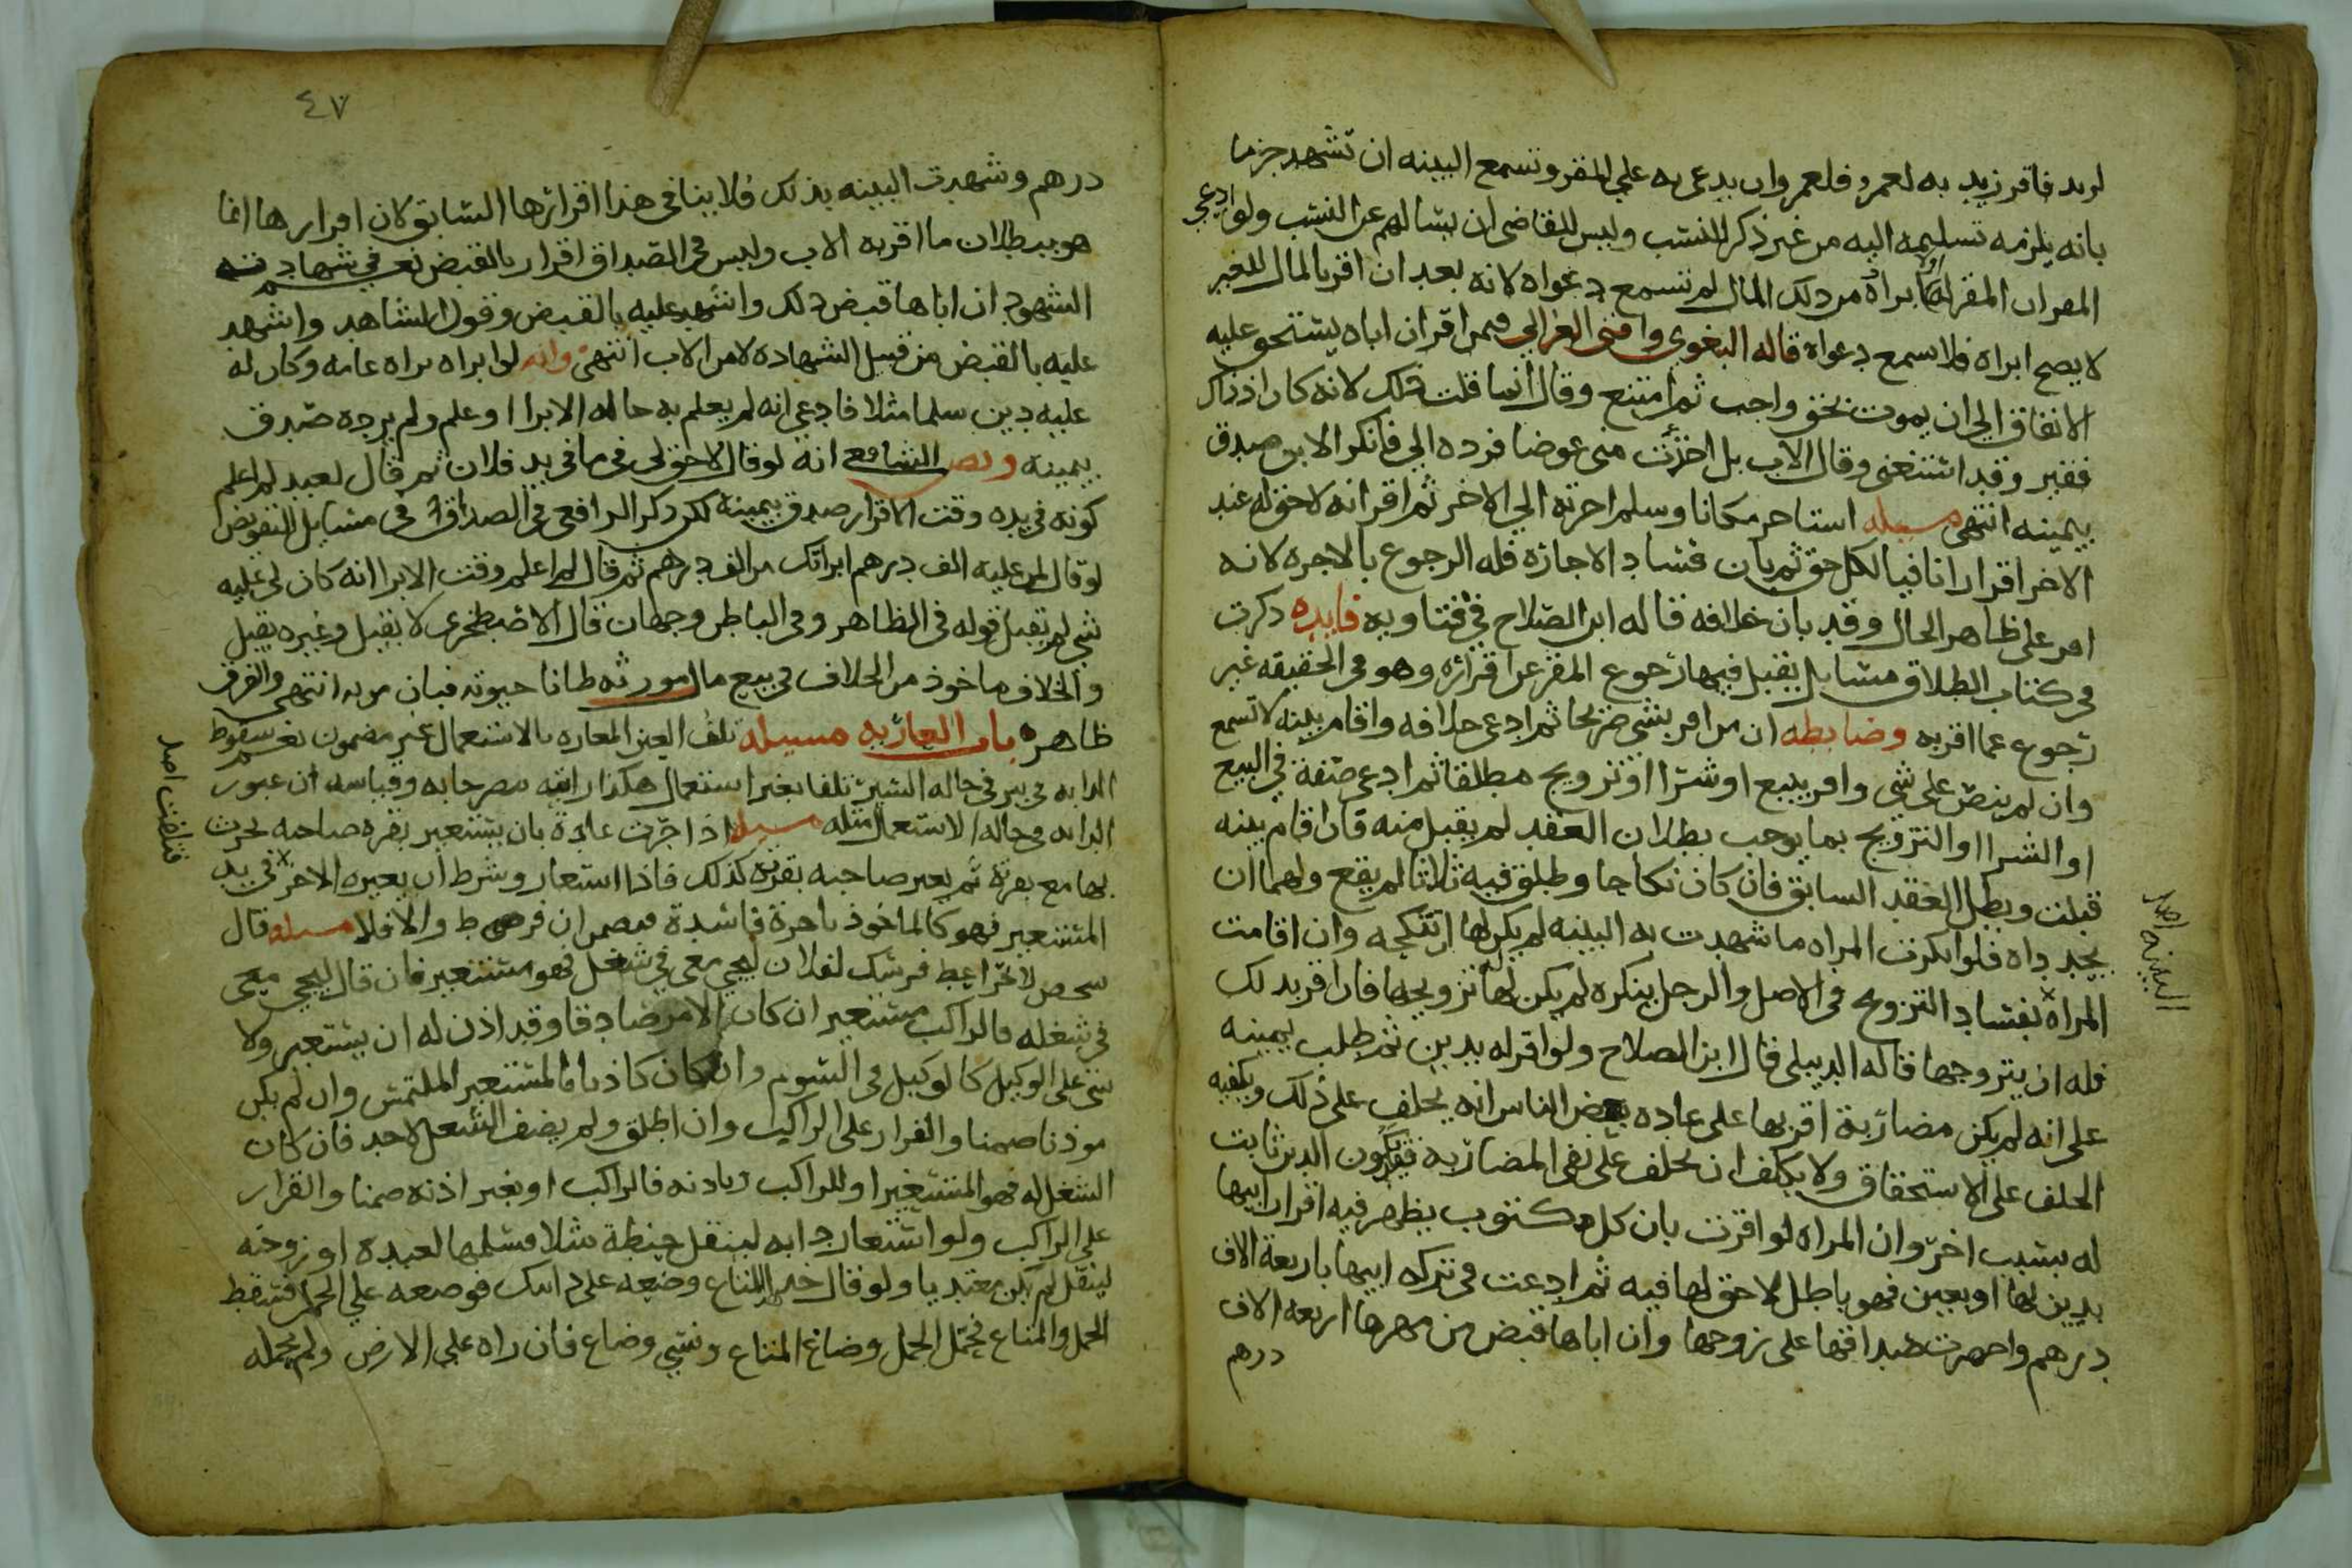 لزيد فاقر زيد به لعمرو فلعمرو ان يدعى به على المقر وتسمع البينه ان تشهد جزما
بانه يلزمه تسليمه اليه من غير ذكر للنسب وليس للقاضى ان يسالهم عن النسب ولو ادعى
المقر ان المقر له ابراه من ذلك المال لم تسمع دعواه لانه بعد ان اقر بالمال للغير
لا يصح ابراه فلا تسمع دعواه قاله البغوي وافتى الغزالي فيمن اقر ان اباه يستحق عليه
الانفاق الي ان يموت بحق واجب ثم امتنع وقال انما قلت ذلك لانه كان اذ ذاك
فقير وقد استغنى وقال الاب بل اخذت منى عوضا فرده الي فانكر الابن صدق
بيمينه انتهى مسيله استاجر مكانا وسلم اجرته الي الاخر ثم اقر انه لا حق له عند
الاخر اقرارا نافيا لكل حق ثم بان فساد الاجازه فله الرجوع بالاجره لانه
اقر على ظاهر الحال وقد بان خلافه قاله ابن الصلاح في فتاويه فايده ذكرت
فى كتاب الطلاق مسايل يقبل فيها رجوع المقر عن اقراره وهو فى الحقيقه غير
رجوع عما اقر به وضابطه ان من اقر بشى صريحا ثم ادعى خلافه واقام بينه لا تسمع
وان لم ينص على شى واقر ببيع او شرا او تزويج مطلقا ثم ادعى صفة في البيع
او الشرا او التزويج بما يوجب بطلان العقد لم يقبل منه فان اقام بينه
قبلت وبطل العقد السابق فان كان نكاحا وطلق فيه ثلاثا لم يقع ولهما ان
يجدداه فلو انكرت المراه ما شهدت به البينه لم يكن لها ان تنكحه وان اقامت
المراه بفساد التزوج في الاصل والرجل ينكره لم يكن لها تزويجها فان اقر بذلك
البينه اصل
فله ان يتزوجها قاله الدبيلى قال ابن الصلاح ولو اقر له بدين ثم طلب يمينه
على انه لم يكن مضاربة اقر بها على عاده بعض الناس انه يحلف على ذلك ويكفيه
الحلف على الاستحقاق ولا يكلف ان يحلف على نفى المضاربه فقد يكون الدين ثابت
له بسبب اخر وان المراه لو اقرت بان كل مكتوب يظهر فيه اقرار ابيها
بدين لها او بعين فهو باطل لا حق لها فيه ثم ادعت فى تركه ابيها باربعة الاف
درهم واحضرت صداقها على زوجها وان اباها قبض من مهرها اربعه الاف
درهم
٤٧
درهم وشهدت البينه بذلك فلا ينافى هذا اقرارها السابق لان اقرارها انما
هو ببطلان ما اقر به الاب وليس فى الصداق اقرار بالقبض نعم فى شهادته
الشهود ان اباها قبض ذلك واشهد عليه بالقبض وقول الشاهد واشهد
عليه بالقبض من قبيل الشهاده لا من الاب انتهى وانه لو ابراه براه عامه وكان له
عليه دين سلما مثلا فادعى انه لم يعلم به حاله الابرا او علم ولم يرده صدق
بيمينه ونص الشافعي انه لو قال لا حق لي فى ما في يد فلان ثم قال لعبد لم اعلم
كونه في يده وقت الاقرار صدق بيمينه لكن ذكر الرافعى فى الصداق فى مسايل التفويض
لو قال لمن عليه الف درهم ابراتك من الف درهم ثم قال لم اعلم وقت الابرا انه كان لى عليه
شى لم يقبل قوله فى الظاهر وفى الباطن وجهان قال الاصطخرى لا يقبل وغيره يقبل
والخلاف ماخوذ من الخلاف فى بيع مال مورثه ظانا حيوته فبان موته انتهى والفرق
ظاهر باب العاريه مسيله تلف العين المعاره بالاستعمال غير مضمون نعم سقوط
الدابه فى بير في حاله السير تلفا بغير استعمال هكذا رايته مصرحا به وقياسه ان عبور
فناقضت اصل
الدابه فى حاله الاستعمال مثله مسيله اذا جرت عادة بان يستعير بقره صاحبه لحرث
بها مع بقرة ثم يعير صاحبه بقرته كذلك فاذا استعار وشرط ان يعيره الاخر في يد
المستعير فهو كالماخوذ باجرة فاسدة فيضمن ان فرط والا فلا مسيله قال
شخص لاخر اعط فرسك لفلان ليجي معى في شغل فهو مستعير فان قال ليجي معى
فى شغله فالراكب مستعير ان كان الامر صادقا وقد اذن له ان يستعير ولا
شى على الوكيل كالوكيل فى السوم وان كان كاذبا فالمستعير الملتمس وان لم يكن
موذنا ضمنا والقرار على الراكب وان اطلق ولم يضف الشغل لاحد فان كان
الشغل له فهو المستعير او للراكب وباذنه فالراكب او بغير اذنه ضمنا والقرار
على الراكب ولو استعار دابه لينقل حنطة مثلا فسلمها لعبده او زوجته
لينقل لم يكن متعديا ولو قال خذ المتاع وضعه على دابتك فوضعه علي الحمل فسقط
الحمل والمتاع فحمل الحمل وضاع المتاع ونسي وضاع فان راه علي الارض ولم يحمله